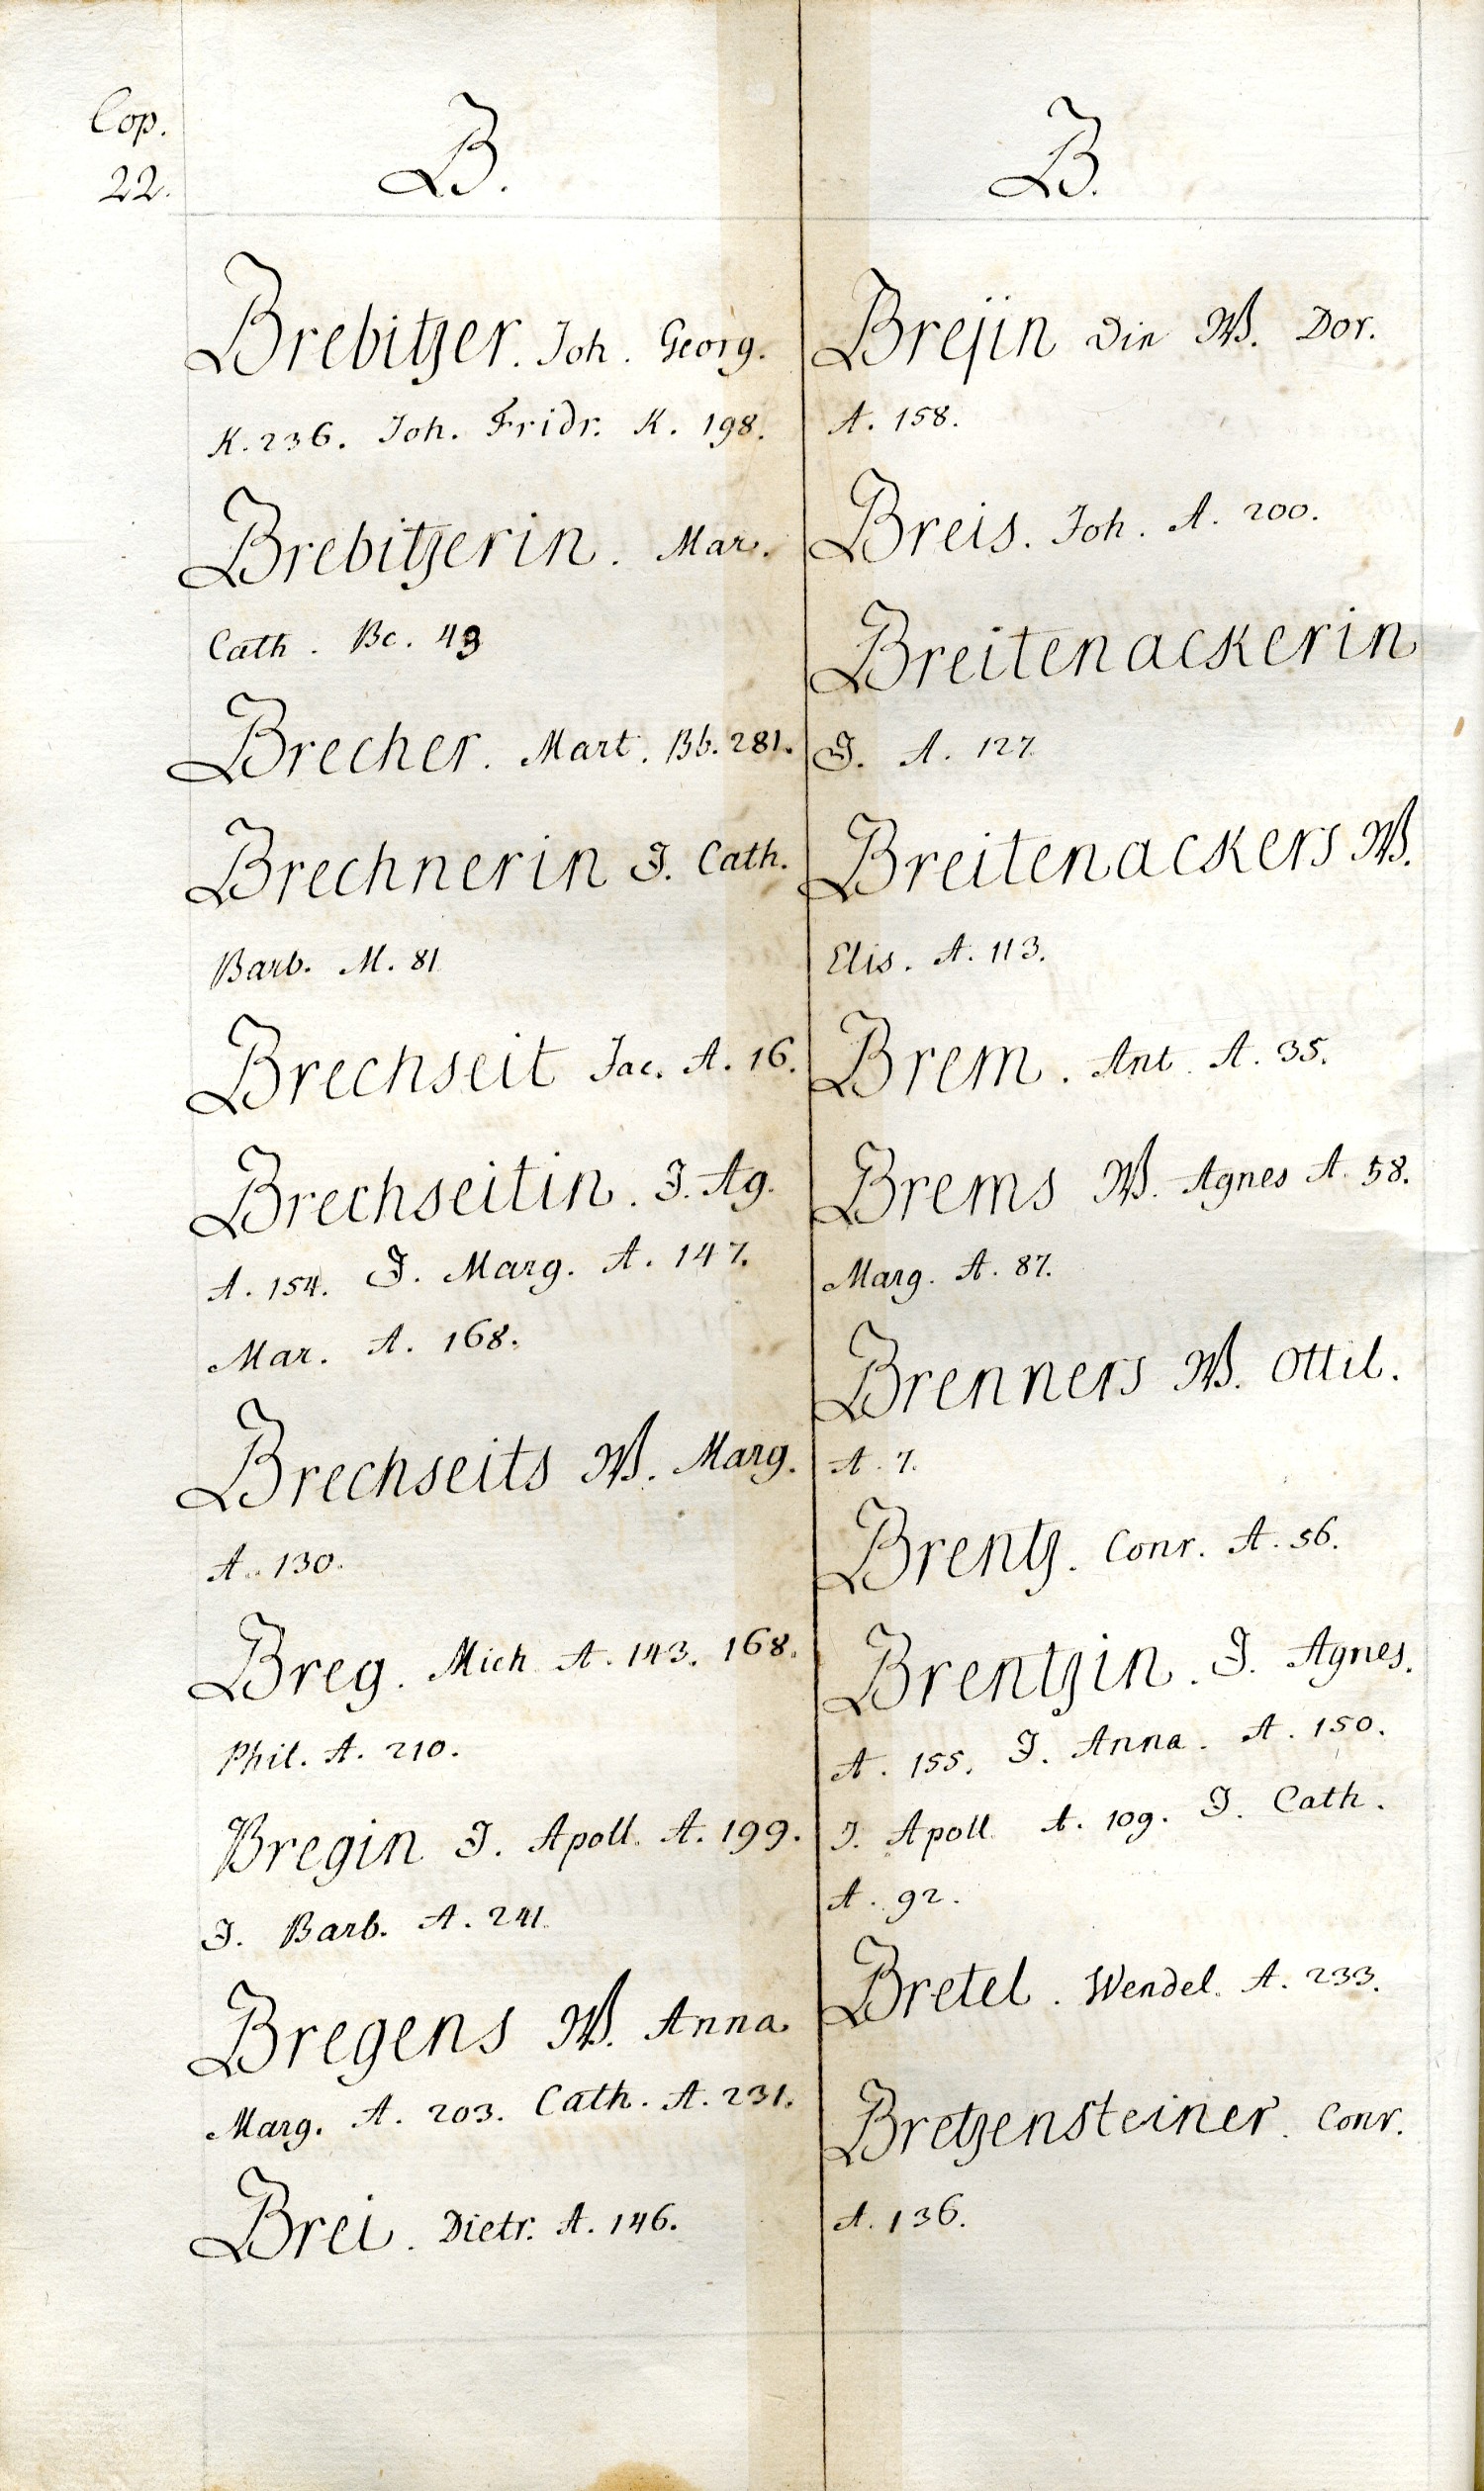 Cop.
22.
B.
Brebitzer. Joh. Georg.
K. 236. Joh. Fridr. K. 198.
Brebitzerin. Mar.
Cath. Bc. 43
Brecher. Mart. Bb. 281.
Brechnerin J. Cath.
Barb. M. 81
Brechseit Jac. A. 16.
Brechseitin. J. Ag.
A. 154. J. Marg. A. 147.
Mar. A. 168.
Brechseits W. Marg.
A. 130.
Breg. Mich A. 143. 168.
Phil. A. 210.
Bregin J. Apoll. A. 199.
J. Barb. A. 241.
Bregens W. Anna
Marg. A. 203. Cath. A. 231.
Brei. Dietr. A. 146.
B.
Brejin die W. Dor.
A. 158.
Breis. Joh. A. 200.
Breitenackerin
J. A. 127.
Breitenackers W.
Elis. A. 113.
Brem. Ant. A. 35.
Brems W. Agnes A. 58.
Marg. A. 87.
Brenners W. Ottil.
A. 7.
Brentz. Conr. A. 56.
Brentzin. J. Agnes.
A. 155. J. Anna. A. 150.
J. Apoll. A. 109. J. Cath.
A. 92.
Bretel. Wendel. A. 233.
Bretzensteiner. Conr.
A. 136.